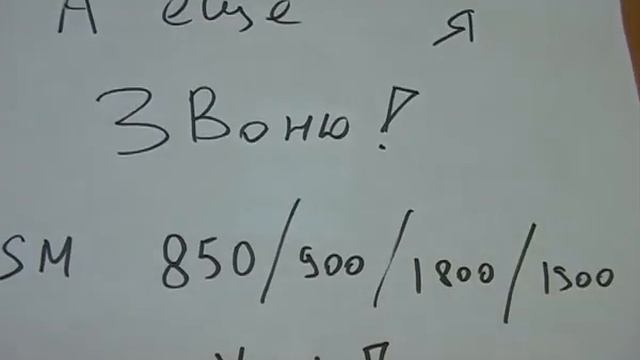 А еще я
Звоню!
SM 850/900/1800/1900